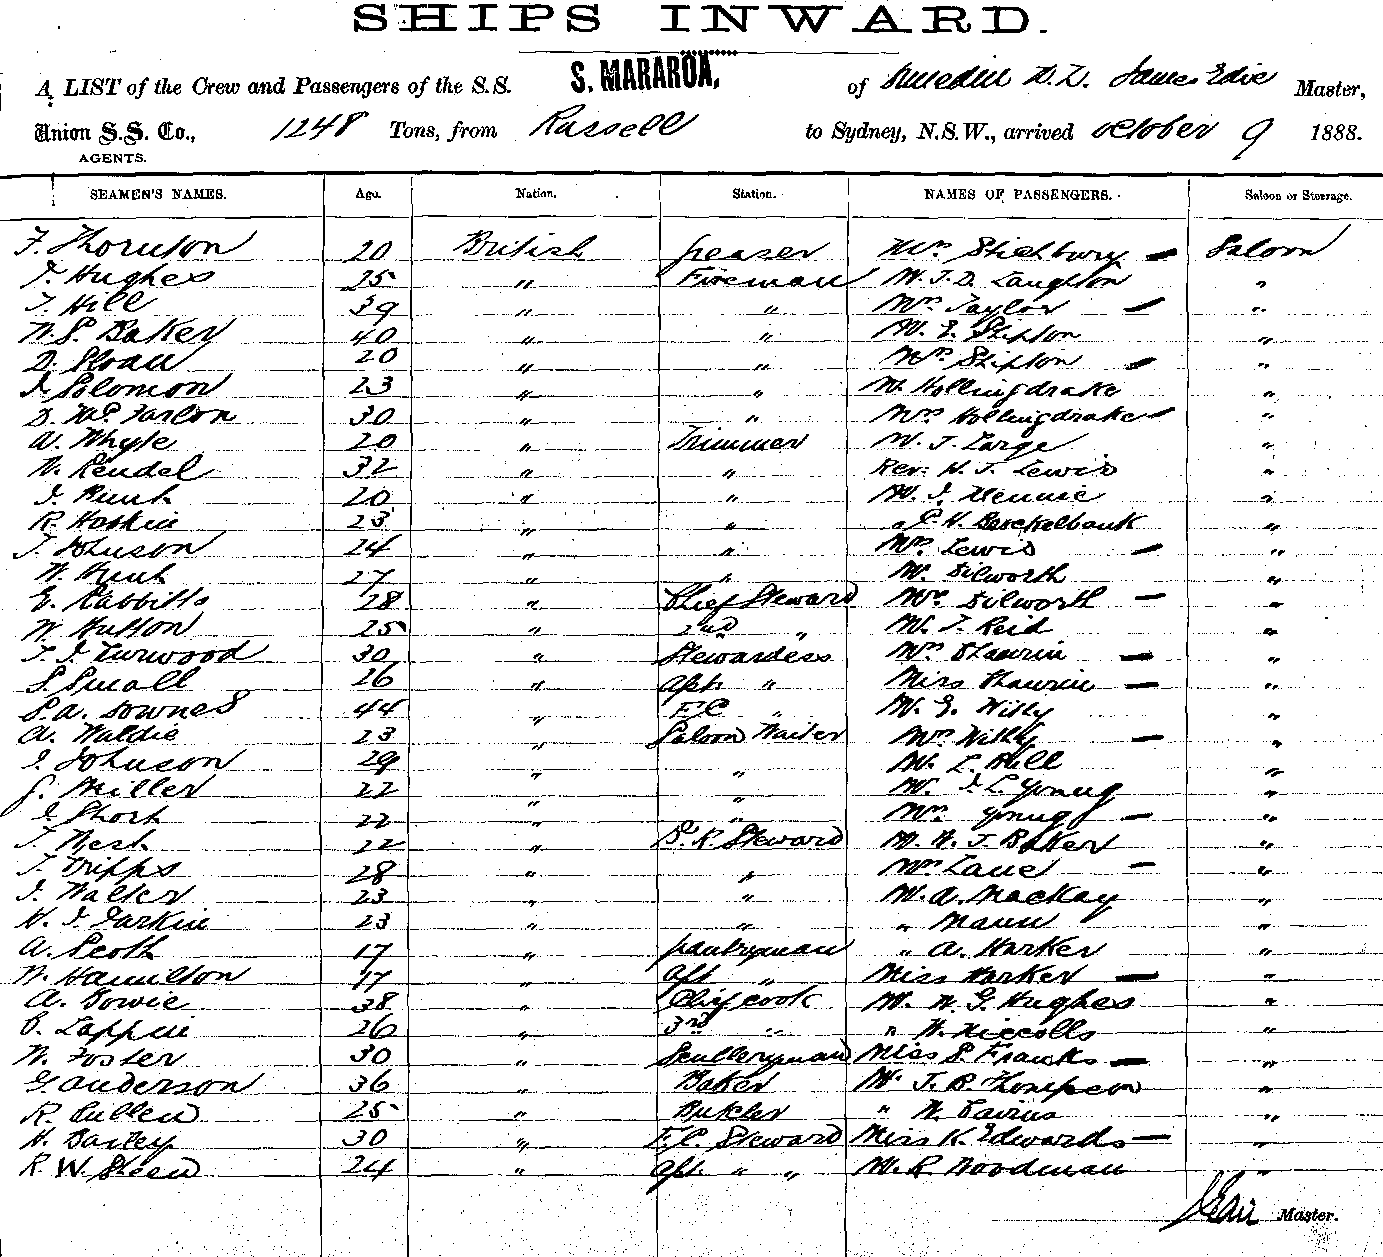 SHIPS INWARD.
A LIST of the Crew and Passengers of the S.S. S. MARAROA, of Dunedin James Edie Master,
Union S.S. Co., 1248 Tons, from Russell to Sydney, N.S.W., arrived October 9 1888.
AGENTS.
SEAMEN'S NAMES. Age. Nation. Station. NAMES OF PASSENGERS. Saloon or Steerage.
F. Thornton 20 British Greaser Mrs Stichbury — Saloon
T. Hughes 25 " Fireman M. T. D. Laughton "
T. Hill 39 " " Mrs Taylor — "
W. S. Baker 40 " " M. E. Shipton "
D. Sloan 20 " " Mrs Shipton — "
J. Solomon 23 " " M. Hollingdrake "
D. 30 " " Mrs Hollingdrake — "
W. Whyte 20 " Trimmer M. T. Large "
W. Rendel 32 " " Rev. H. T. Lewis "
J. Hunt 20 " " M. J. Rennie "
R. Haskin 23 " " " P. H. Brockelbank "
T. Johnson 24 " " Mrs Lewis — "
W. Hunt 27 " " M. Dilworth "
E. Rabbitts 28 " Chief Steward Mrs Dilworth — "
W. Hutton 25 " 2nd " M. T. Reid "
T. J. Turwood 30 " Stewardess Mrs — "
S. Small 26 " Asst. " Miss — "
S. A. Downes 44 " F.C. " M. E. Willy "
A. Waldie 23 " Saloon Waiter Mrs Willy — "
J. Johnson 29 " " M. L. Hill "
G. Miller 22 " " M. J. L. Young "
J. Short 22 " " Mrs Young — "
T. West 22 " B. R. Steward M. W. T. Baker "
T. Tripps 28 " " Mrs Lane — "
J. Walker 23 " " M. A. Mackay "
H. J. Larkin 23 " " " Mann "
A. Scott 17 " Pantryman " A. Harker "
W. Hamilton 17 " Asst. " Miss Harker — "
A. Bowie 38 " Chief Cook M. W. G. Hughes "
C. Lappin 26 " 3rd " " H. Niccolls "
W. Foster 30 " Sculleryman Miss S. Franks — "
G. Anderson 36 " Baker M. J. R. Thompson "
R. Cullen 25 " Butcher " W. "
H. Bailey 30 " F.C. Steward Miss K. Edwards — "
R. W. Steen 24 " Asst. " " M. R. Woodman "
Master.